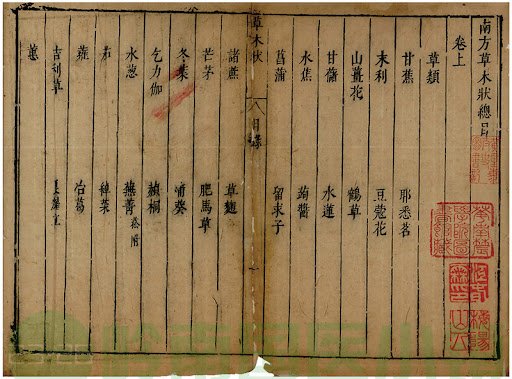 南方草木狀總目
卷上
草類
甘蕉 耶悉茗
末利 豆蔻花
山薑花 鶴草
甘藷 水蓮
水蕉 蒟醬
菖蒲 留求子
草木狀 目錄
諸蔗 草麴
芒茅 肥馬草
冬葉 蒲葵
乞力伽 赬桐
水葱 蕪菁
茄 綽菜
蕹 冶葛
吉利草
蕙